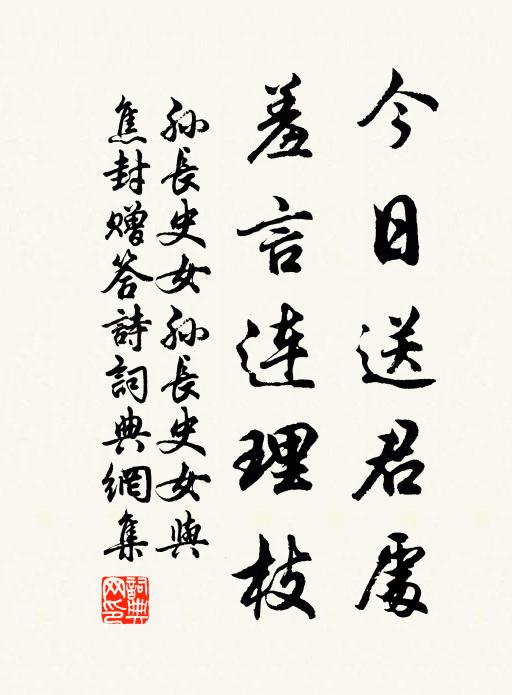 今日送君處
羞言連理枝
孫長史女孫長史女與
焦封贈答詩詞典網集
詞典